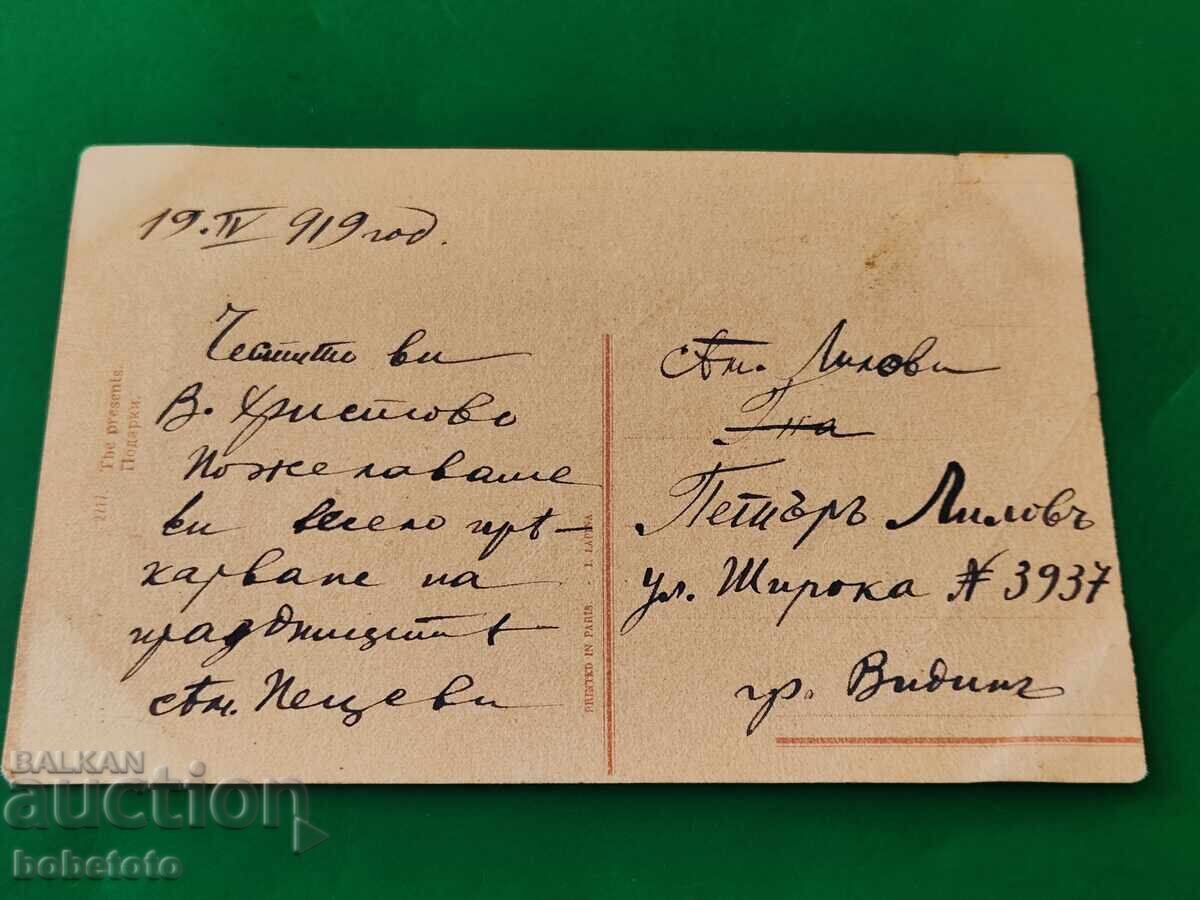 19.IV 919 год.
Честито ви
В. Христово
Пожелаваме
ви весело прѣ-
карване на
празdницитѣ
сѣм. Пецеви
сѣм. Лилови
Г-на
Петъръ Лиловъ
ул. Широка № 3937
гр. Видинъ
The presents.
Подарки.
PRINTED IN PARIS. - I. LAPINA
BALKAN
auction
bobetoto